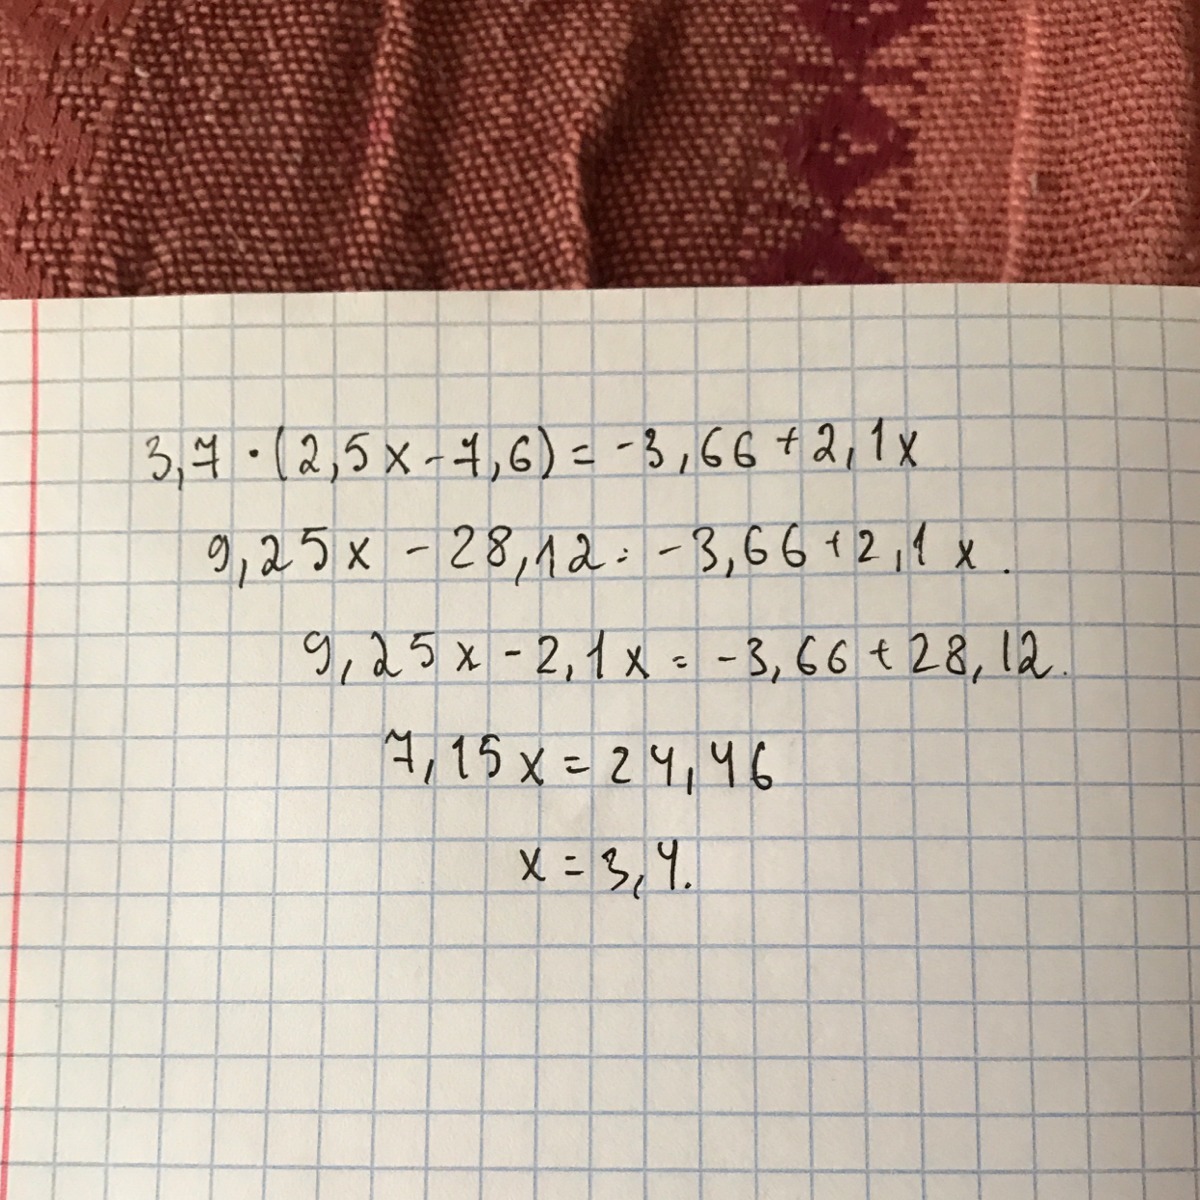 3,7 · (2,5x - 7,6) = -3,66 + 2,1x
9,25x - 28,12 = -3,66 + 2,1x.
9,25x - 2,1x = -3,66 + 28,12.
7,15x = 24,46
x = 3,4.